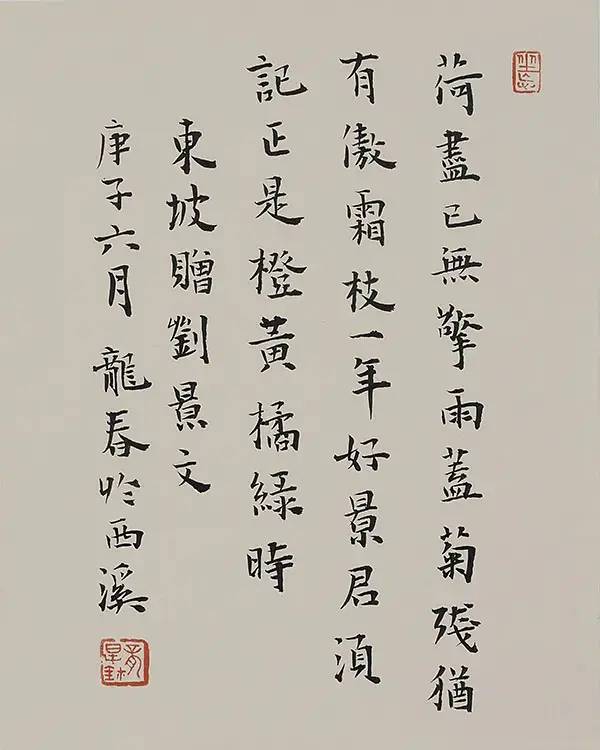 荷盡已無擎雨蓋菊殘猶
有傲霜枝一年好景君須
記正是橙黃橘綠時
東坡贈劉景文
庚子六月龍春於西溪